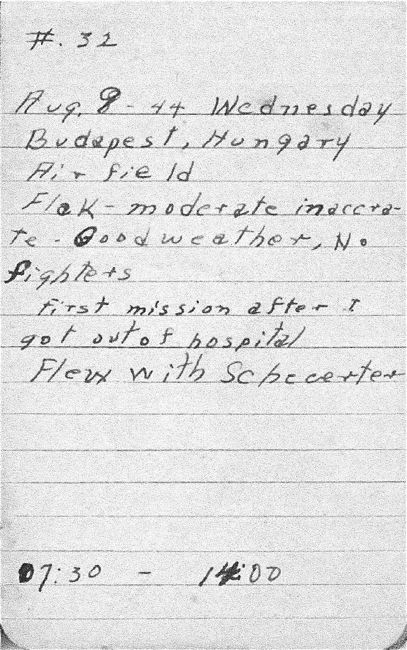 #. 32
Aug. 9 - 44 Wednesday
Budapest, Hungary
Air field
Flak - moderate inaccra-
te - Good weather, No
fighters
first mission after I
got out of hospital
Flew with Schecerter
07:30 - 14:00